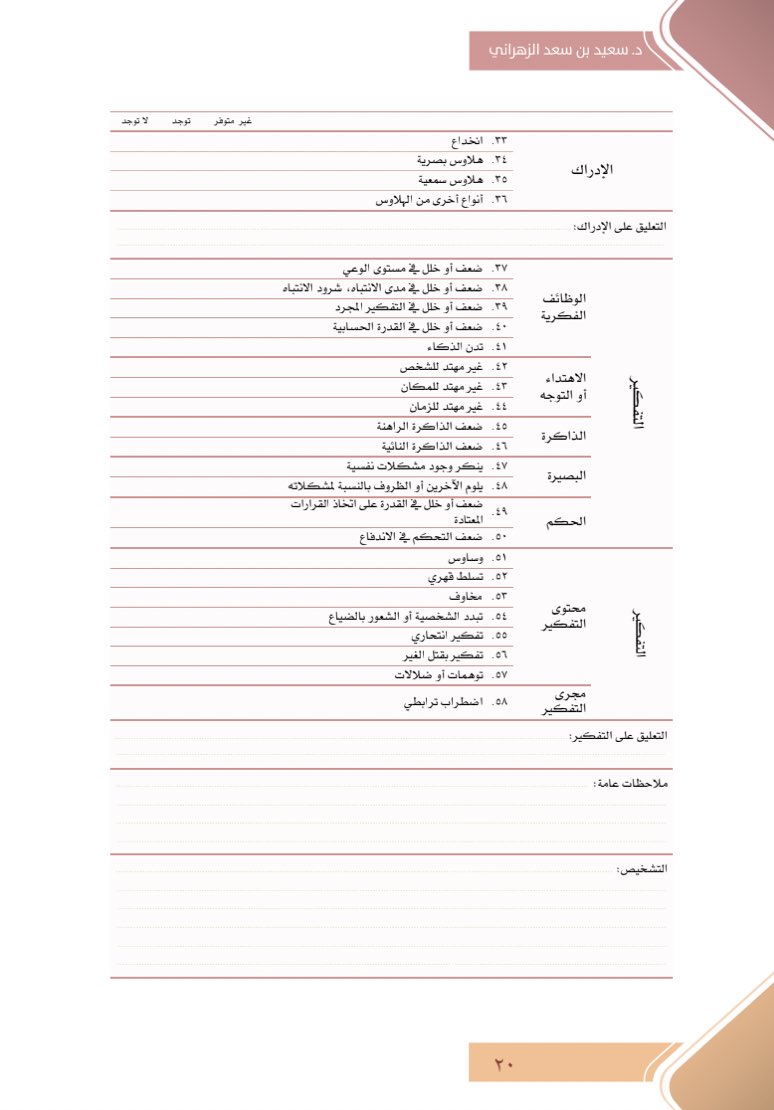 د. سعيد بن سعد الزهراني
غير متوفر توجد لا توجد
الإدراك
٣٣. انخداع
٣٤. هلاوس بصرية
٣٥. هلاوس سمعية
٣٦. أنواع أخرى من الهلاوس
التعليق على الإدراك:
التفكير
الوظائف
الفكرية
٣٧. ضعف أو خلل في مستوى الوعي
٣٨. ضعف أو خلل في مدى الانتباه، شرود الانتباه
٣٩. ضعف أو خلل في التفكير المجرد
٤٠. ضعف أو خلل في القدرة الحسابية
٤١. تدن الذكاء
الاهتداء
أو التوجه
٤٢. غير مهتد للشخص
٤٣. غير مهتد للمكان
٤٤. غير مهتد للزمان
الذاكرة
٤٥. ضعف الذاكرة الراهنة
٤٦. ضعف الذاكرة النائية
البصيرة
٤٧. ينكر وجود مشكلات نفسية
٤٨. يلوم الآخرين أو الظروف بالنسبة لمشكلاته
الحكم
٤٩. ضعف أو خلل في القدرة على اتخاذ القرارات
المعتادة
٥٠. ضعف التحكم في الاندفاع
التفكير
محتوى
التفكير
٥١. وساوس
٥٢. تسلط قهري
٥٣. مخاوف
٥٤. تبدد الشخصية أو الشعور بالضياع
٥٥. تفكير انتحاري
٥٦. تفكير بقتل الغير
٥٧. توهمات أو ضلالات
مجرى
التفكير
٥٨. اضطراب ترابطي
التعليق على التفكير:
ملاحظات عامة:
التشخيص:
٢٠